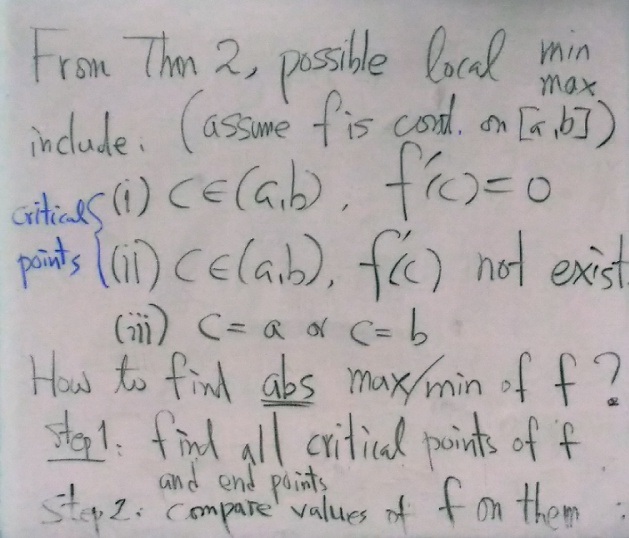 From Thm 2, possible local min
max
include: (assume f is cont. on [a,b])
critical points { (i) C∈(a,b), f'(c)=0
(ii) C∈(a,b), f'(c) not exist.
(iii) C=a or C=b
How to find abs max/min of f?
Step1: find all critical points of f
and end points
Step2: compare values of f on them :